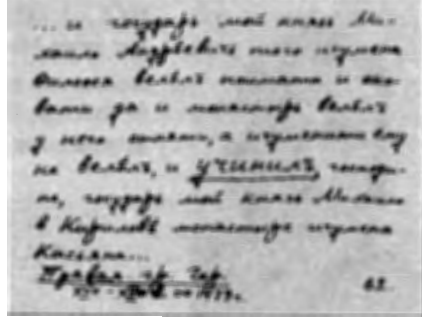 ... и государь мой князь Ми-
хайло Андрѣевичь того игумена
велѣлъ поимати и ско-
вати да и монастырь велѣлъ
у него отняти, а игуменити ему
не велѣлъ, и учинилъ, господи-
не, государь мой князь Михайло
в Кириловѣ монастырѣ игумена
Касьяна...
Правая гр.
63.